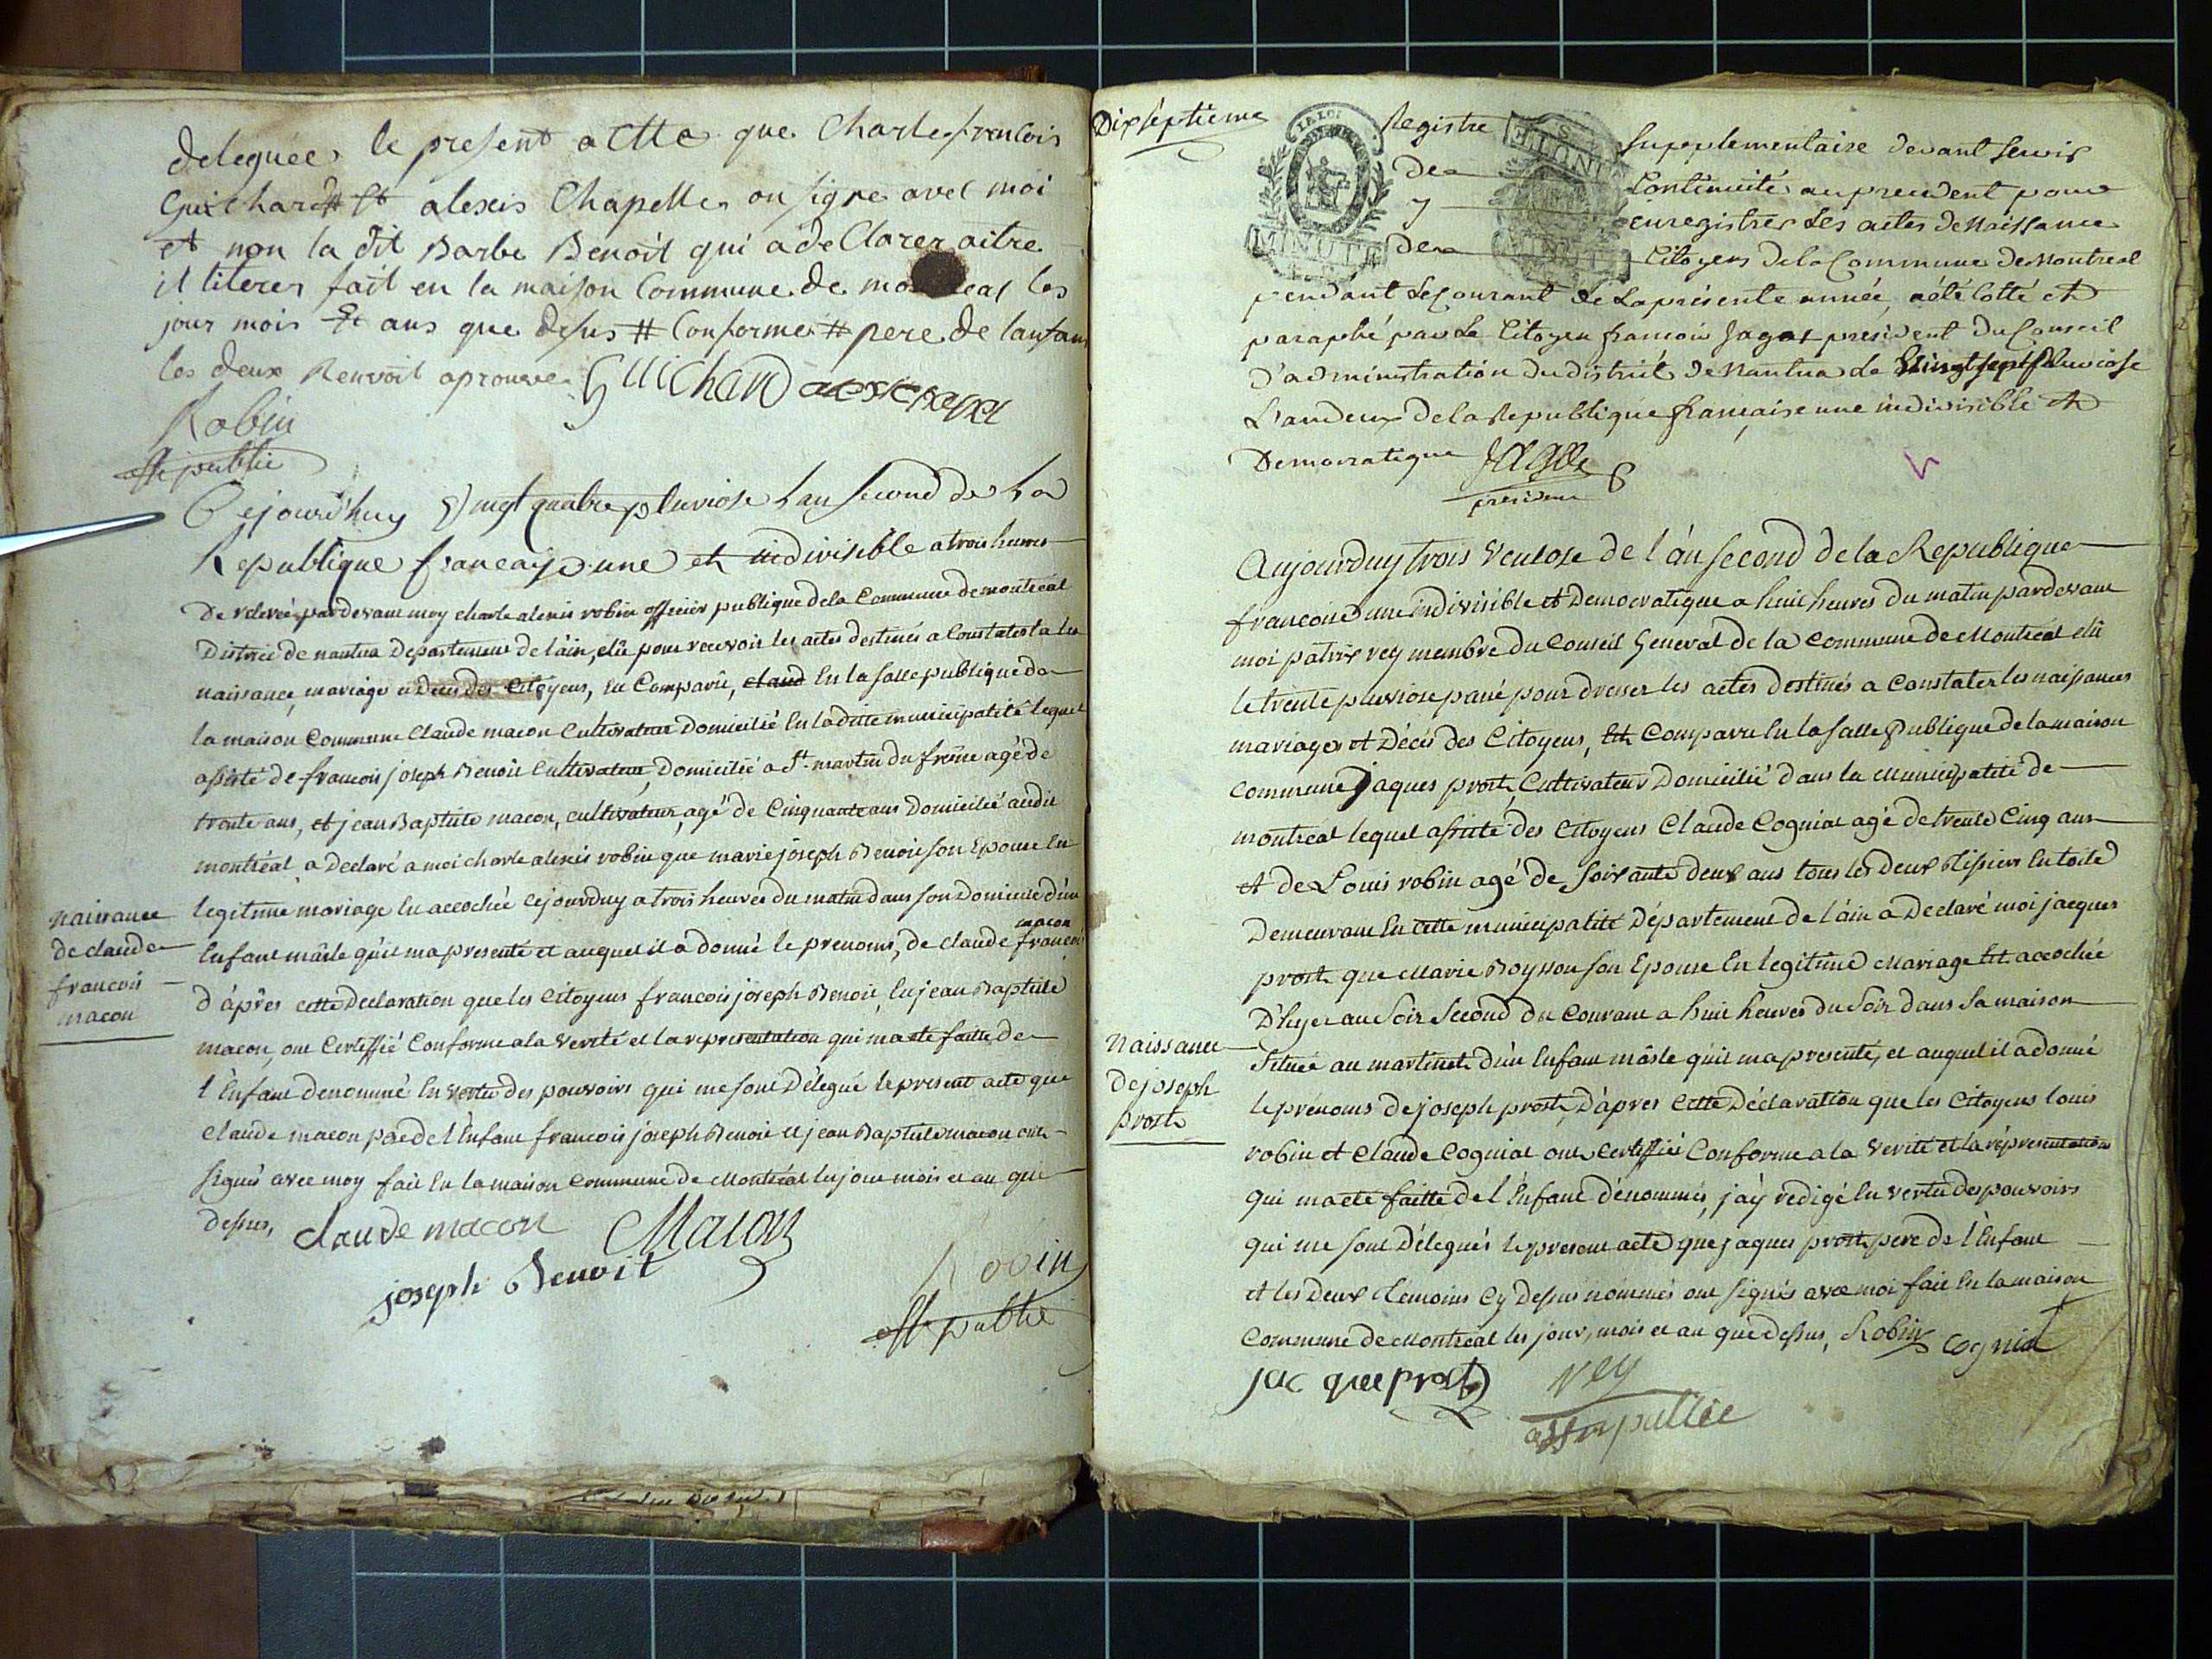 deleguée le present acte que Charle francois
Guichard # et alexis Chapelle on signe avec moi
et non la dit Barbe Benoit qui a de Clarer aitre
il literer fait en la maison Commune de montreal les
jour mois et ans que desus # Conforme # pere de lanfan
les deux Renvoit aprouve Guichard
Robin
offe publie
Cejourd'huy Vingt quatre pluviose lan second de la
Republique francaise une et indivisible a trois heures
De relevée pardevant moy charle alexis robin officier publique de la Commune de montreal
District de nantua Departement de l'ain, elu pour recevoir les actes destinés a Constater la
naissance, mariage et deces des Citoyens, en Comparu, claud En la salle publique de
la maison Commune Claude macon Cultivateur Domicilié En la dite municipalité lequel
assisté de francois joseph Benoit Cultivateur, Domicilié a St. martin du fresne agé de
trente ans, et jean Baptiste macon, cultivateur, agé de Cinquante ans Domicilié audit
montréal a Declaré a moi charle alexis robin que marie joseph Benoit son Epouse En
naissance
de claude
francois
macon
legitime mariage en accochée cejourduy a trois heures du matin dans son Domicile d'un
macon
Enfant mâsle qu'il ma presenté et auquel il a donné le prenoms, de claude francois
d'âprês cette Declaration que les Citoyens francois joseph Benoit, en jean Baptiste
macon, ont Certiffié Conforme a la verité et la representation qui ma ete faitte de
l'Enfant denommé En vertu des pouvoirs qui me sont Délegué le present acte que
claude macon pere de l'Enfant francois joseph Benoit et jean Baptiste macon ont
signés avec moy fait En la maison Commune de Montréal les jour mois et an que
dessus, claude macon Macon
joseph Benoit
Robin
offe publie
Dixseptieme
Registre supplementaire devant servir
de Continuité au precedent pour
y enregistrer Les actes de Naissance
des Citoyens de la Commune de Montreal
pendant Le Courant de La présente année, a été Cotté et
paraphé par Le Citoyen francois Jagot président du Conseil
d'administration du district de Nantua le Vingt sept pluviose
L'an deux de la Republique française une indivisible et
Democratique Jagot
président
LA LOI
MINUTE
Aujourduy trois Ventose de l'an second de la Republique
francoise une indivisible et Democratique a huit heures du matin pardevant
moi patrix rey membre du Conseil General de la commune de Montreal élu
le trente pluviose passé pour dresser les actes destinés a Constater les naissances
mariages et Décés des Citoyens, Est Comparu En la salle Publique de la maison
commune Jaques prost, Cultivateur Domicilié dans la Municipalité de
montreal lequel assisté des Citoyens Claude Cogniat agé de trente Cinq ans
et de Louis robin agé de soixante deux ans tous les deux
Demeurant En cette municipalité Département de l'ain a Declaré moi jacques
prost que Marie Boysson son Epouse En legitime Mariage Est accochée
D'hyer au soir second du Courant a huit heures du soir dans sa maison
Naissance
de joseph
prost
Située au martinet d'un Enfant mâsle qu'il ma presenté, et auquel il a donné
le prénoms de joseph prost, D'apres Cette Déclaration que les Citoyens louis
robin et Claude Cogniat ont Certiffié Conforme a la verité et la répresentation
qui ma ete faitte de l'Enfant dénommé, j'ay redigé En vertu des pouvoirs
qui me sont Délegués le present acte que jaques prost pere de l'Enfant
et les deux témoins Cy dessus nommés ont signés avec moi fait En la maison
Commune de Montréal les jour, mois et an que dessus, Robin Cogniat
jacque prost rey